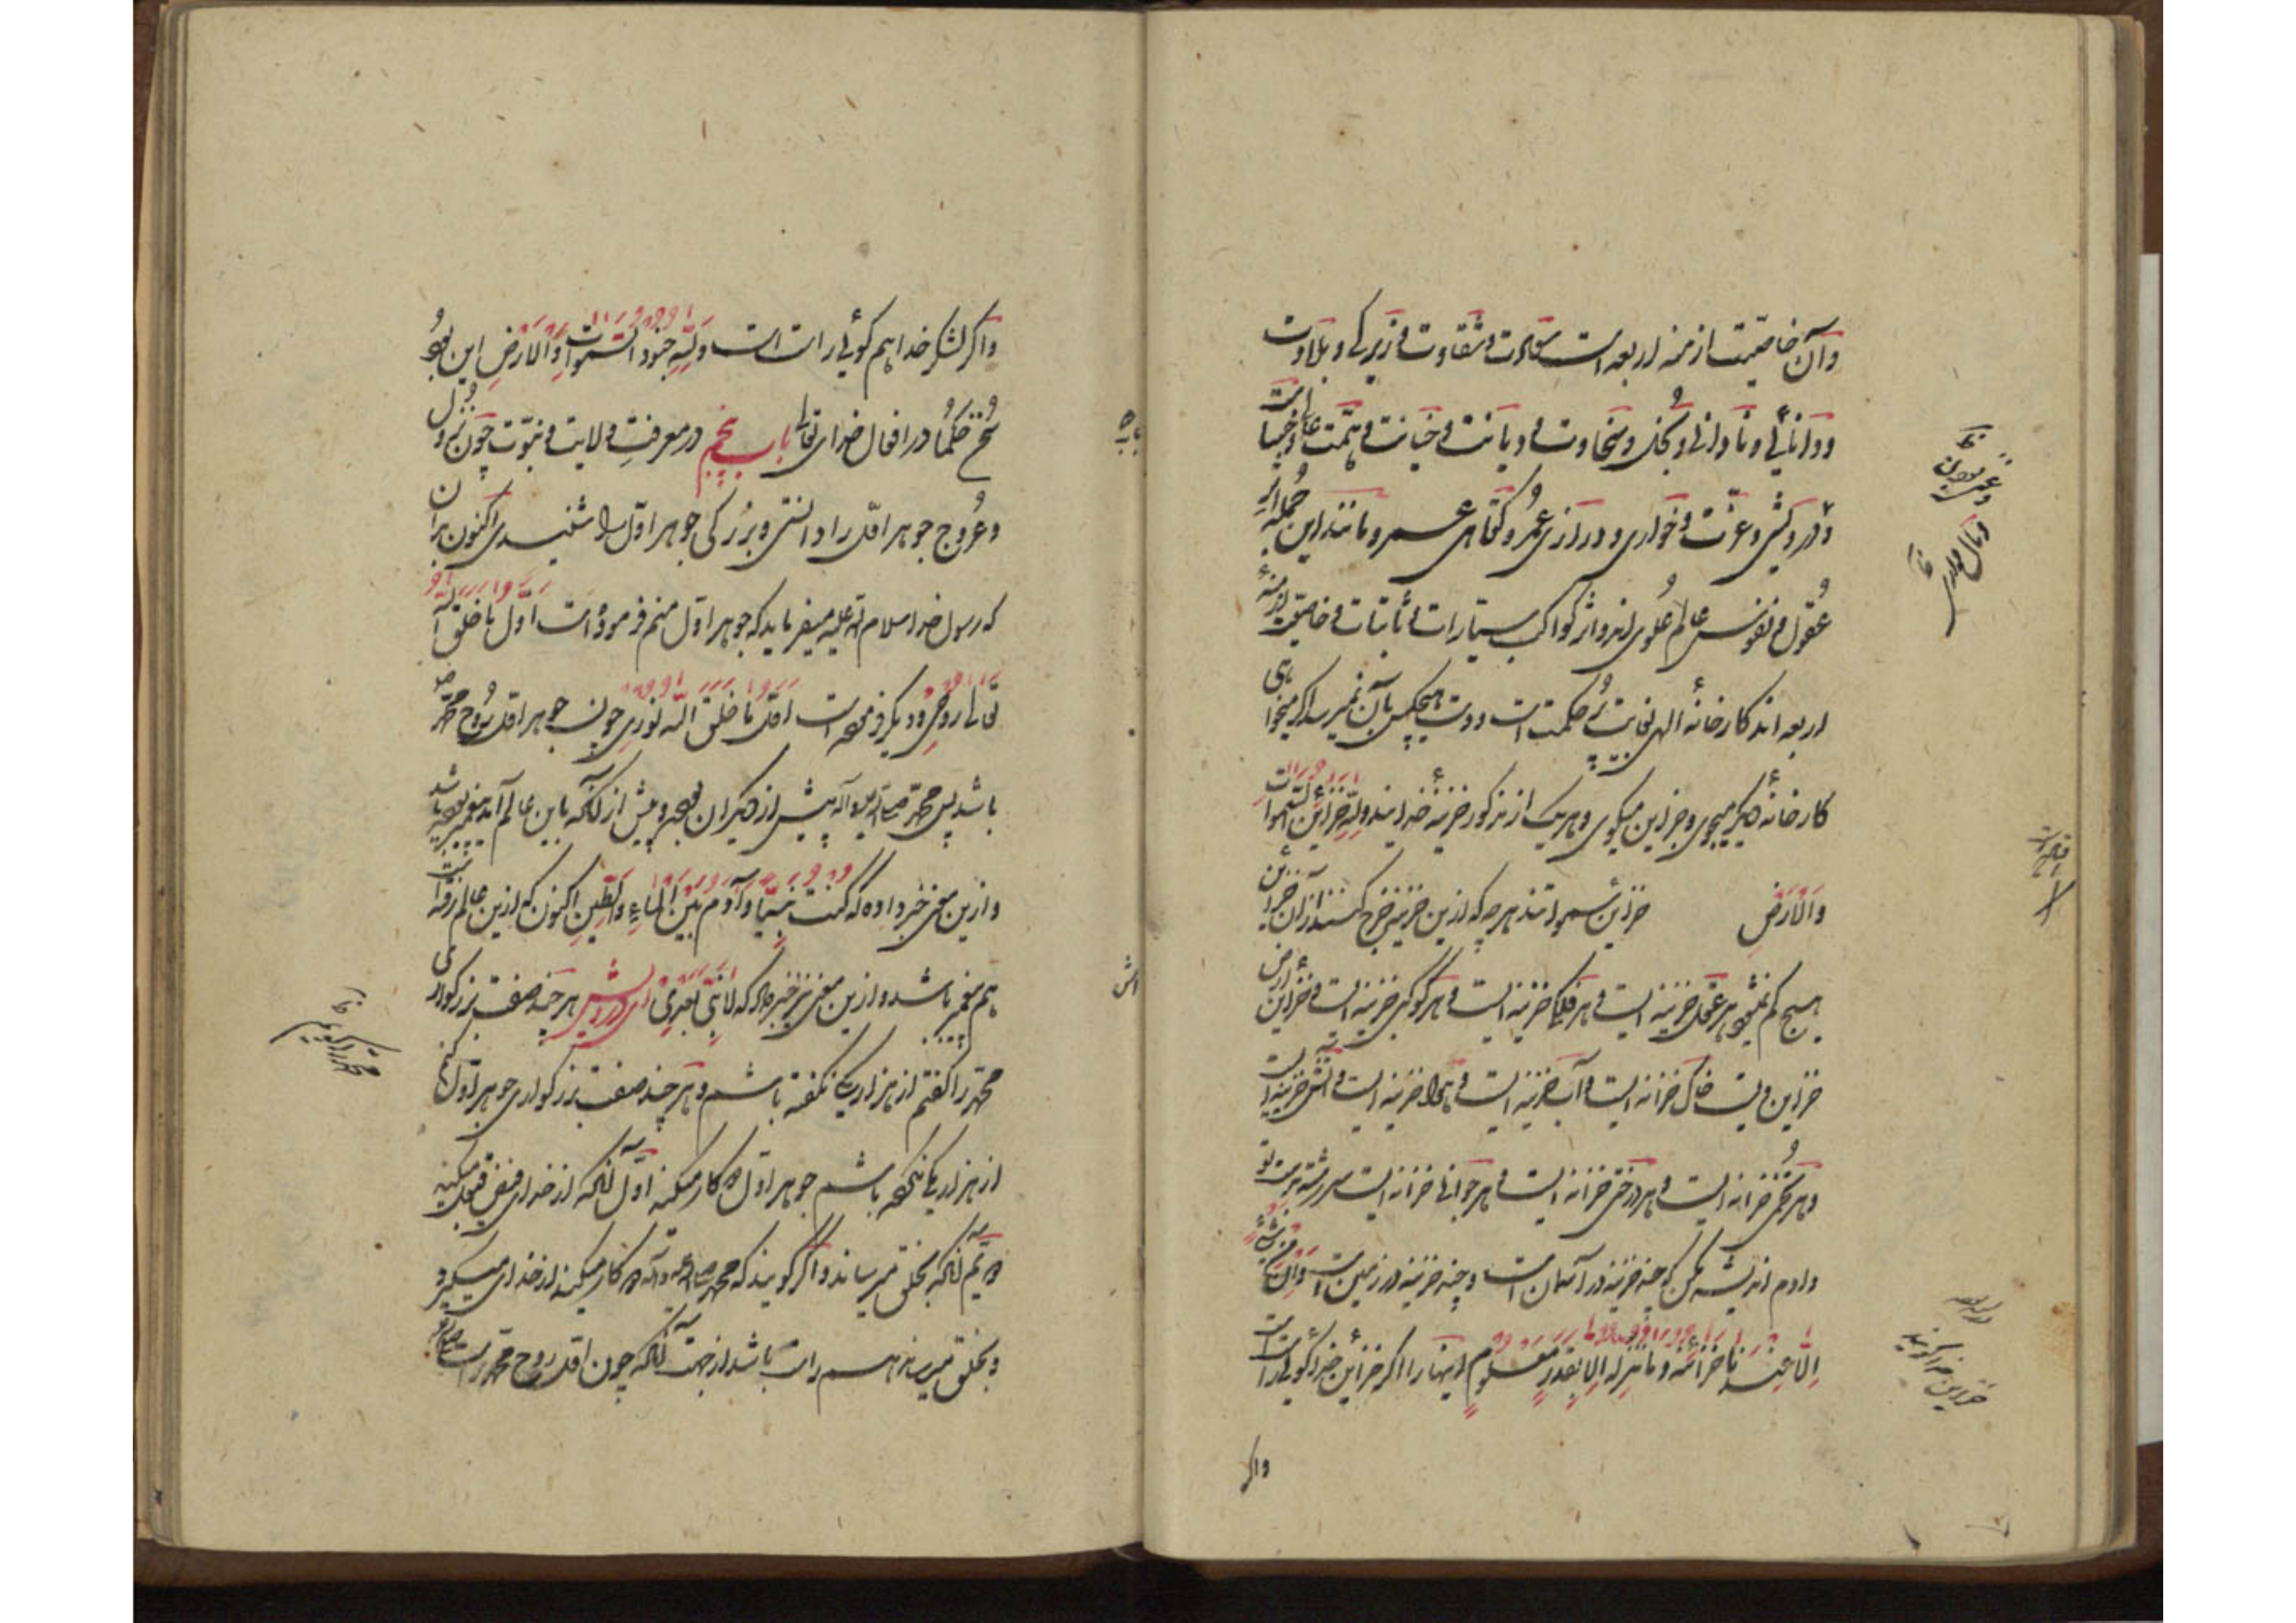 وآن خاصیت ازمنه اربعه است سعادت و شقاوت و زیرکی و بلادت
و دانائی و نادانی و بخل و سخاوت و دیانت و خیانت و همت عالی و خساست
و درویشی و عزت و خواری و درازی عمر و کوتاهی عمر و مانند این جمله از اثر
عقول و نفوس عالم علوی اند و اثر کواکب سیارات و ثابتات و خاصیت ازمنهٔ
اربعه اند کارخانهٔ الهی بغایت پُر حکمت است و دست هیچکس بآن نمیرسد اگر میخواهی
کارخانهٔ دیگر میجوی و جز این میگوی و هر یک از مذکور خزینهٔ خدایند ولله خزائن السموات
والارض خزاین شمرانند هرچه که ازین خزینه خرج کنند از آن خزائن
هیچ کم نشود هر عقلی خزینه ایست و هر فلکی خزینه ایست و هر کوکبی خزینه ایست و خزاین ارض
خزاین خاک خزانه ایست و آب خزینه ایست و هوا خزینه ایست و آتش خزینه ایست
و هر تخمی خزانه ایست و هر درختی خزانه ایست و هر حیوانی خزانه ایست سررشته بدست تو
دادم اندیشه میکن که چند خزینه در آسمان است و چند خزینه در زمین است وان من شیٔ
الا عندنا خزائنه وما ننزله الا بقدر معلوم اینها را اگر خزائن خدا گوئی راست است
واگر
خزاین خدا گویند
واگر لشکر خدا هم گوئی راست است ولله جنود السموات والارض این بود
سخن حکما در افعال خدای تعالی باب پنجم در معرفت ولایت و نبوت چون نزول
و عروج جوهر اول را دانستی و بزرگی جوهر اول را شنیدی اکنون بدان
که رسول خدا سلام الله علیه میفرماید که جوهر اول منم فرموده است اول ما خلق الله
تعالی روحی و دیگر فرموده است اول ما خلق الله نوری چون جوهر اول روح محمد
باشد پس محمد صلی الله علیه وآله پیش از دیگران بوده و پیش از آنکه باین عالم آید پیغمبر بوده باشد
و ازین معنی خبر داده که کنت نبیا وآدم بین الماء والطین اکنون که ازین عالم رفته است
هم پیغمبر باشد و ازین معنی نیز خبر داد که لا نبی بعدی ای درویش هرچند صفت بزرگواری
محمد را گفتم از هزار یکی نگفته باشم و هرچند صفت بزرگواری جوهر اول کنم
از هزار یکی نگفته باشم جوهر اول دو کار میکند اول آنکه از خدای فیض قبول میکند
دویم آنکه بخلق میرساند و اگر گویند که محمد صلی الله علیه وآله دو کار میکند از خدای میگیرد
و بخلق میرساند هم راست باشد از جهت آنکه چون اول روح محمد راست
محمد را گویم